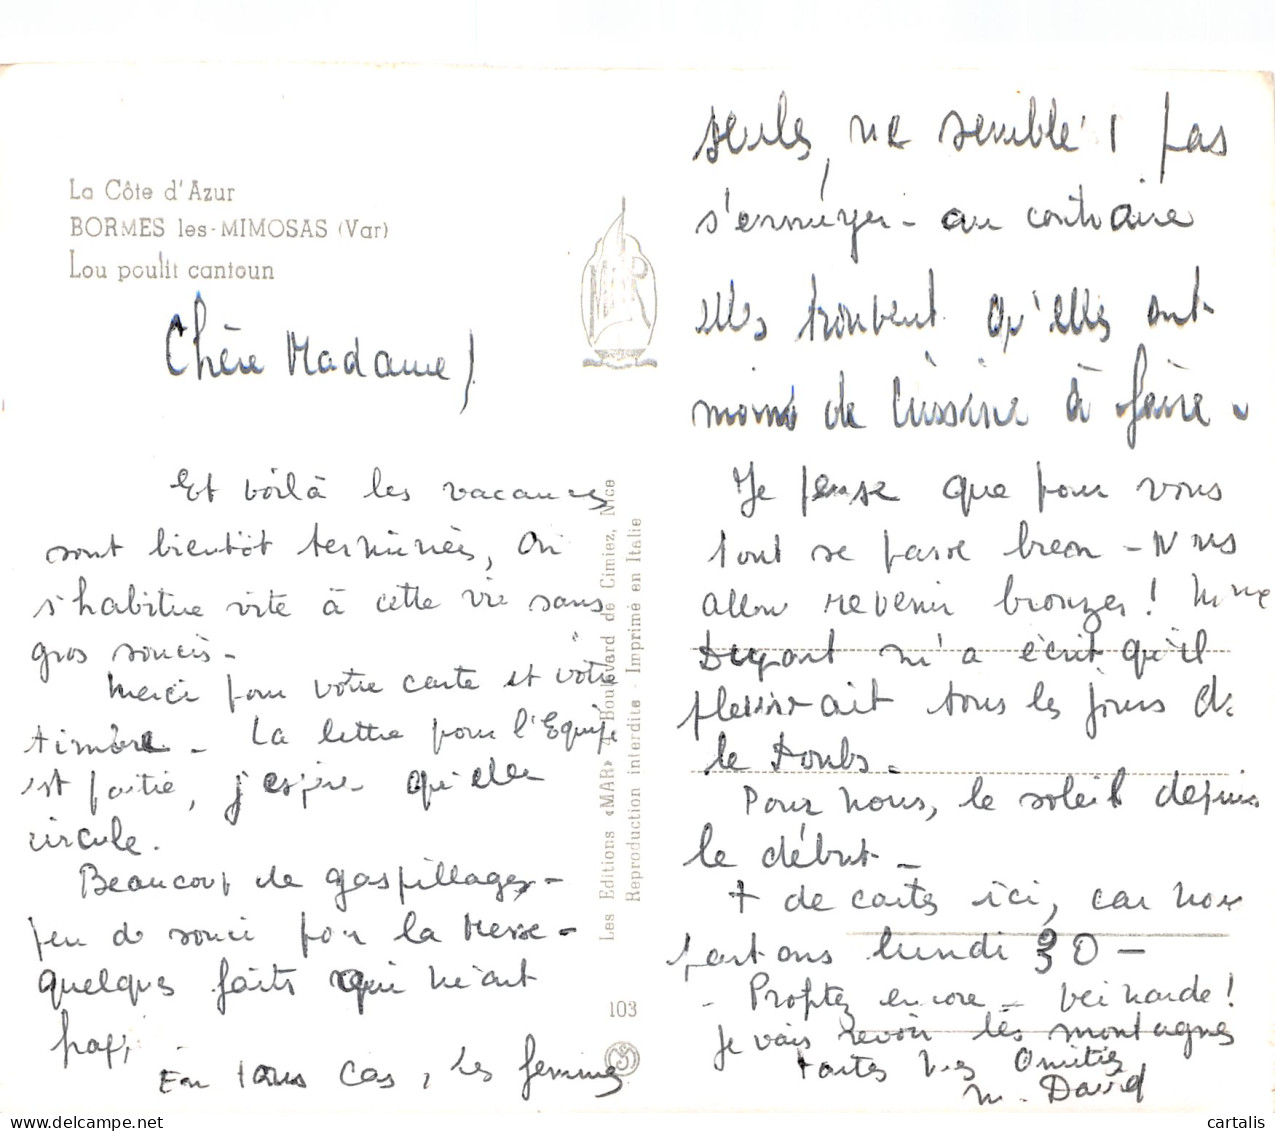 La Côte d'Azur
BORMES les-MIMOSAS (Var)
Lou poulit cantoun
Chère Madame,
Et voilà les vacances
sont bientôt terminées, on
s'habitue vite à cette vie sans
gros soucis -
Merci pour votre carte et votre
timbre - La lettre pour l'Equipe
est partie, j'espère qu'elle
circule.
Beaucoup de gaspillages -
peu de souci pour la Messe -
quelques faits qui m'ont
En tous cas, les femmes
Les Editions «MAR» Boulevard de Cimiez, Nice
Reproduction interdite - Imprimé en Italie
103
seules, ne semblent pas
s'ennuyer - au contraire
elles trouvent qu'elles ont
moins de cuisine à faire.
Je pense que pour vous
tout se passe bien - Nous
allons revenir bronzés ! Mme
m'a écrit qu'il
pleuvrait tous les jours de
le Doubs -
Pour nous, le soleil depuis
le début -
+ de cartes ici, car nous
partons lundi 30 -
- Profitez encore - veinarde !
Je vais revoir les montagnes
toutes mes Amitiés
M. David
cartalis